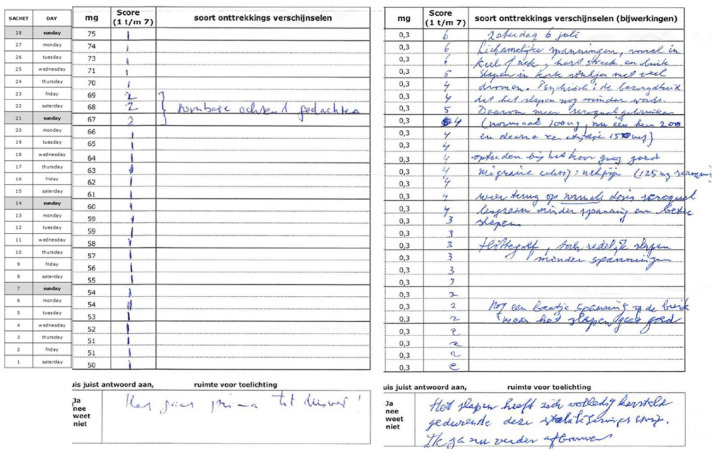 SACHET DAY mg Score (1 t/m 7) soort onttrekkings verschijnselen
28 sunday 75 1
27 monday 74 1
26 tuesday 73 1
25 wednesday 71 1
24 thursday 70 1
23 friday 69 2
22 saturday 68 2 ochtend gedachten
21 sunday 67 2
20 monday 66 1
19 tuesday 65 1
18 wednesday 64 1
17 thursday 63 1
16 friday 62 1
15 saturday 61 1
14 sunday 60 1
13 monday 59 1
12 tuesday 59 1
11 wednesday 58 1
10 thursday 57 1
9 friday 56 1
8 saturday 55 1
7 sunday 54 1
6 monday 54 1
5 tuesday 53 1
4 wednesday 52 1
3 thursday 51 1
2 friday 51 1
1 saturday 50 1
uis juist antwoord aan, ruimte voor toelichting
Ja
nee
weet
niet
prima tot dusver!
Score (1 t/m 7) soort onttrekkings verschijnselen (bijwerkingen)
0,3 6 zaterdag 6 juli
0,3 6 Lichamelijke spanningen, vooral in
0,3 6 keel
0,3 5 slapen in korte stukjes met veel
0,3 4 dromen. Psychisch: de bezorgdheid
0,3 4 dat het slapen nog minder wordt.
0,3 5 Daarom meer seroquel gebruiken
0,3 4 (normaal 100mg, nu één keer 200
0,3 4 en daarna een tijdje 150mg)
0,3 4
0,3 4 optreden bij het koor ging goed
0,3 4 migraine nekpijn (125mg
0,3 4
0,3 4 weer terug op normale dosis seroquel
0,3 4 langzaam minder spanning en beter
0,3 3 slapen
0,3 3
0,3 3 Hittegolf, toch redelijk slapen
0,3 3 minder spanningen
0,3 3
0,3 3
0,3 2
0,3 2 Nog een beetje spanning op de borst
0,3 2 maar het slapen gaat goed
0,3 2
0,3 2
0,3 2
0,3 2
uis juist antwoord aan, ruimte voor toelichting
Ja
nee
weet
niet
Het slapen heeft zich volledig hersteld
gedurende deze stabilisering
Ik ga nu verder afbouwen